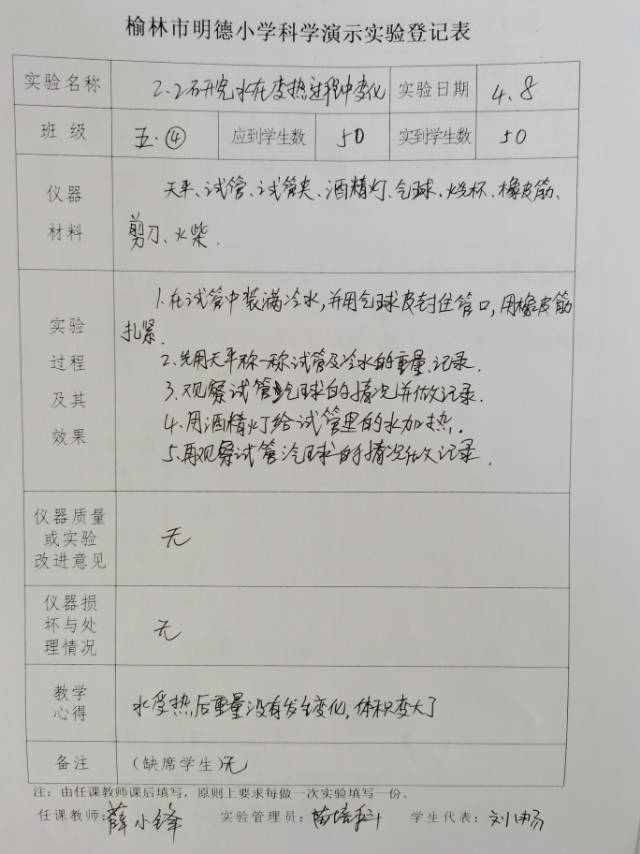 榆林市明德小学科学演示实验登记表
实验名称 2.2研究水在变热过程中变化 实验日期 4.8
班级 五.④ 应到学生数 50 实到学生数 50
仪器 天平、试管、试管夹、酒精灯、气球、烧杯、橡皮筋、
材料 剪刀、火柴.
1.在试管中装满冷水,并用气球皮封住管口,用橡皮筋
扎紧.
实验 2.先用天平称一称试管及冷水的重量、记录.
过程 3.观察试管气球的情况并做记录.
及其 4.用酒精灯给试管里的水加热.
效果 5.再观察试管气球的情况做记录.
仪器质量
或实验 无
改进意见
仪器损
坏与处 无
理情况
教学
心得 水受热后重量没有发生变化,体积变大了
备注 (缺席学生)无
注:由任课教师课后填写,原则上要求每做一次实验填写一份。
任课教师:薛小锋 实验管理员:苗培 学生代表:刘畅